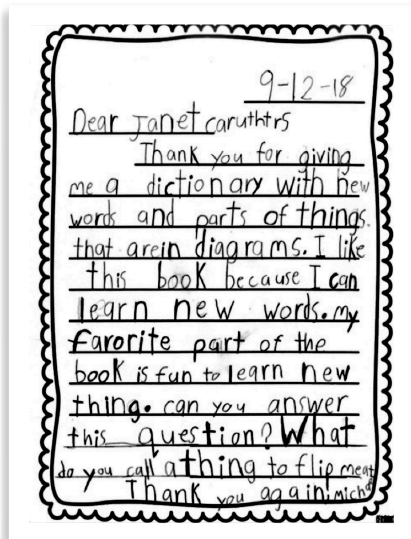 9-12-18
Dear Janet caruthtrs
Thank you for giving
me a dictionary with new
words and parts of things.
that arein diagrams. I like
this book because I can
learn new words. my
farorite part of the
book is fun to learn new
thing. can you answer
this question? What
do you call a thing to flip meat
Thank you again! Micha